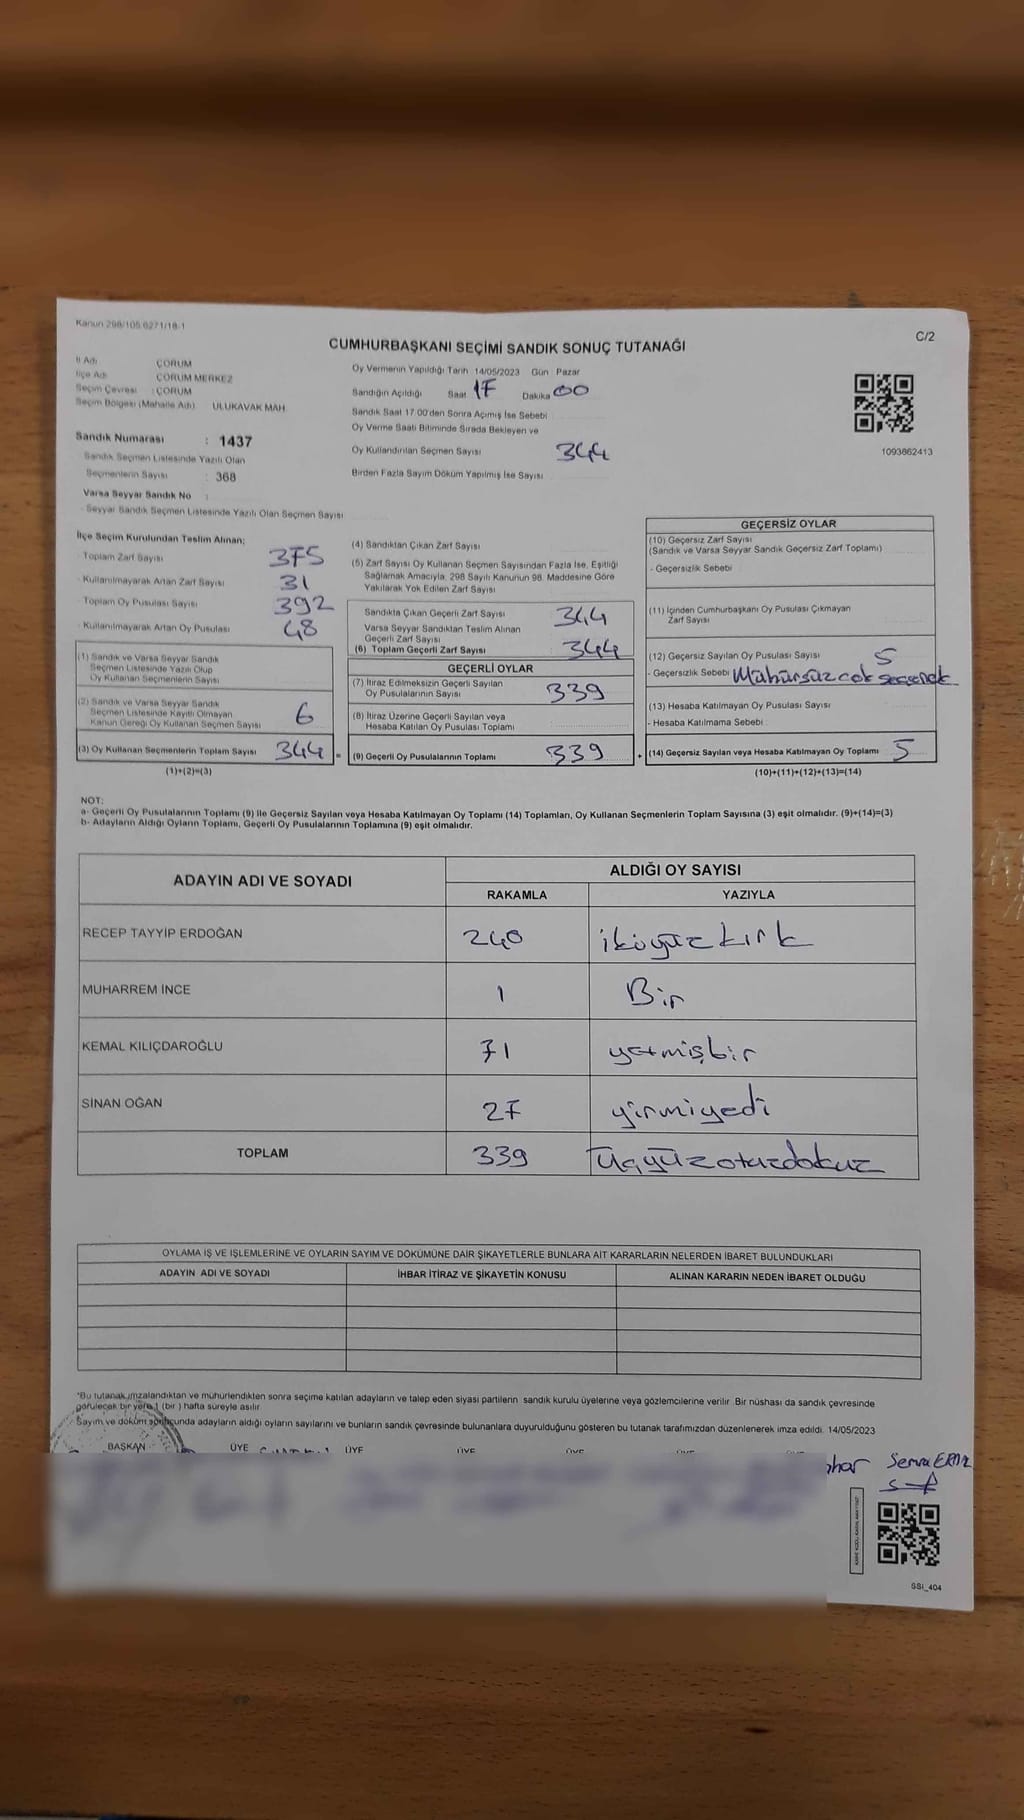 Kanun 298/105 6271/18-1
C/2
CUMHURBAŞKANI SEÇİMİ SANDIK SONUÇ TUTANAĞI
İl Adı : ÇORUM
İlçe Adı : ÇORUM MERKEZ
Seçim Çevresi : ÇORUM
Seçim Bölgesi (Mahalle Adı) ULUKAVAK MAH
Sandık Numarası : 1437
Sandık Seçmen Listesinde Yazılı Olan
Seçmenlerin Sayısı : 368
Varsa Seyyar Sandık No :
- Seyyar Sandık Seçmen Listesinde Yazılı Olan Seçmen Sayısı
Oy Vermenin Yapıldığı Tarih 14/05/2023 Gün : Pazar
Sandığın Açıldığı Saat 17 Dakika 00
Sandık Saat 17:00'den Sonra Açımış İse Sebebi
Oy Verme Saati Bitiminde Sırada Bekleyen ve
Oy Kullandırılan Seçmen Sayısı 344
Birden Fazla Sayım Döküm Yapılmış İse Sayısı
1093862413
İlçe Seçim Kurulundan Teslim Alınan;
- Toplam Zarf Sayısı 375
- Kullanılmayarak Artan Zarf Sayısı 31
- Toplam Oy Pusulası Sayısı 392
- Kullanılmayarak Artan Oy Pusulası 48
(1) Sandık ve Varsa Seyyar Sandık
Seçmen Listesinde Yazılı Olup
Oy Kullanan Seçmenlerin Sayısı
(2) Sandık ve Varsa Seyyar Sandık
Seçmen Listesinde Kayıtlı Olmayan
Kanun Gereği Oy Kullanan Seçmen Sayısı 6
(3) Oy Kullanan Seçmenlerin Toplam Sayısı 344 =
(1)+(2)=(3)
(4) Sandıktan Çıkan Zarf Sayısı
(5) Zarf Sayısı Oy Kullanan Seçmen Sayısından Fazla İse, Eşitliği
Sağlamak Amacıyla, 298 Sayılı Kanunun 98. Maddesine Göre
Yakılarak Yok Edilen Zarf Sayısı
Sandıkta Çıkan Geçerli Zarf Sayısı 344
Varsa Seyyar Sandıktan Teslim Alınan
Geçerli Zarf Sayısı
(6) Toplam Geçerli Zarf Sayısı 344
GEÇERLİ OYLAR
(7) İtiraz Edilmeksizin Geçerli Sayılan
Oy Pusulalarının Sayısı 339
(8) İtiraz Üzerine Geçerli Sayılan veya
Hesaba Katılan Oy Pusulası Toplamı
(9) Geçerli Oy Pusulalarının Toplamı 339 +
GEÇERSİZ OYLAR
(10) Geçersiz Zarf Sayısı
(Sandık ve Varsa Seyyar Sandık Geçersiz Zarf Toplamı)
- Geçersizlik Sebebi
(11) İçinden Cumhurbaşkanı Oy Pusulası Çıkmayan
Zarf Sayısı
(12) Geçersiz Sayılan Oy Pusulası Sayısı 5
- Geçersizlik Sebebi Mühürsüz çok seçenek
(13) Hesaba Katılmayan Oy Pusulası Sayısı
- Hesaba Katılmama Sebebi :
(14) Geçersiz Sayılan veya Hesaba Katılmayan Oy Toplamı 5
(10)+(11)+(12)+(13)=(14)
NOT:
a- Geçerli Oy Pusulalarının Toplamı (9) ile Geçersiz Sayılan veya Hesaba Katılmayan Oy Toplamı (14) Toplamları, Oy Kullanan Seçmenlerin Toplam Sayısına (3) eşit olmalıdır. (9)+(14)=(3)
b- Adayların Aldığı Oyların Toplamı, Geçerli Oy Pusulalarının Toplamına (9) eşit olmalıdır.
ADAYIN ADI VE SOYADI
ALDIĞI OY SAYISI
RAKAMLA YAZIYLA
RECEP TAYYİP ERDOĞAN 240 ikiyüzkırk
MUHARREM İNCE 1 Bir
KEMAL KILIÇDAROĞLU 71 yetmişbir
SİNAN OĞAN 27 yirmiyedi
TOPLAM 339 Üçyüzotuzdokuz
OYLAMA İŞ VE İŞLEMLERİNE VE OYLARIN SAYIM VE DÖKÜMÜNE DAİR ŞİKAYETLERLE BUNLARA AİT KARARLARIN NELERDEN İBARET BULUNDUKLARI
ADAYIN ADI VE SOYADI İHBAR İTİRAZ VE ŞİKAYETİN KONUSU ALINAN KARARIN NEDEN İBARET OLDUĞU
*Bu tutanak imzalandıktan ve mühürlendikten sonra seçime katılan adayların ve talep eden siyasi partilerin sandık kurulu üyelerine veya gözlemcilerine verilir. Bir nüshası da sandık çevresinde
görülecek bir yere 1 (bir ) hafta süreyle asılır.
Sayım ve döküm sonucunda adayların aldığı oyların sayılarını ve bunların sandık çevresinde bulunanlara duyurulduğunu gösteren bu tutanak tarafımızdan düzenlenerek imza edildi. 14/05/2023
BAŞKAN ÜYE ÜYE ÜYE ÜYE
Semra
SSI_404